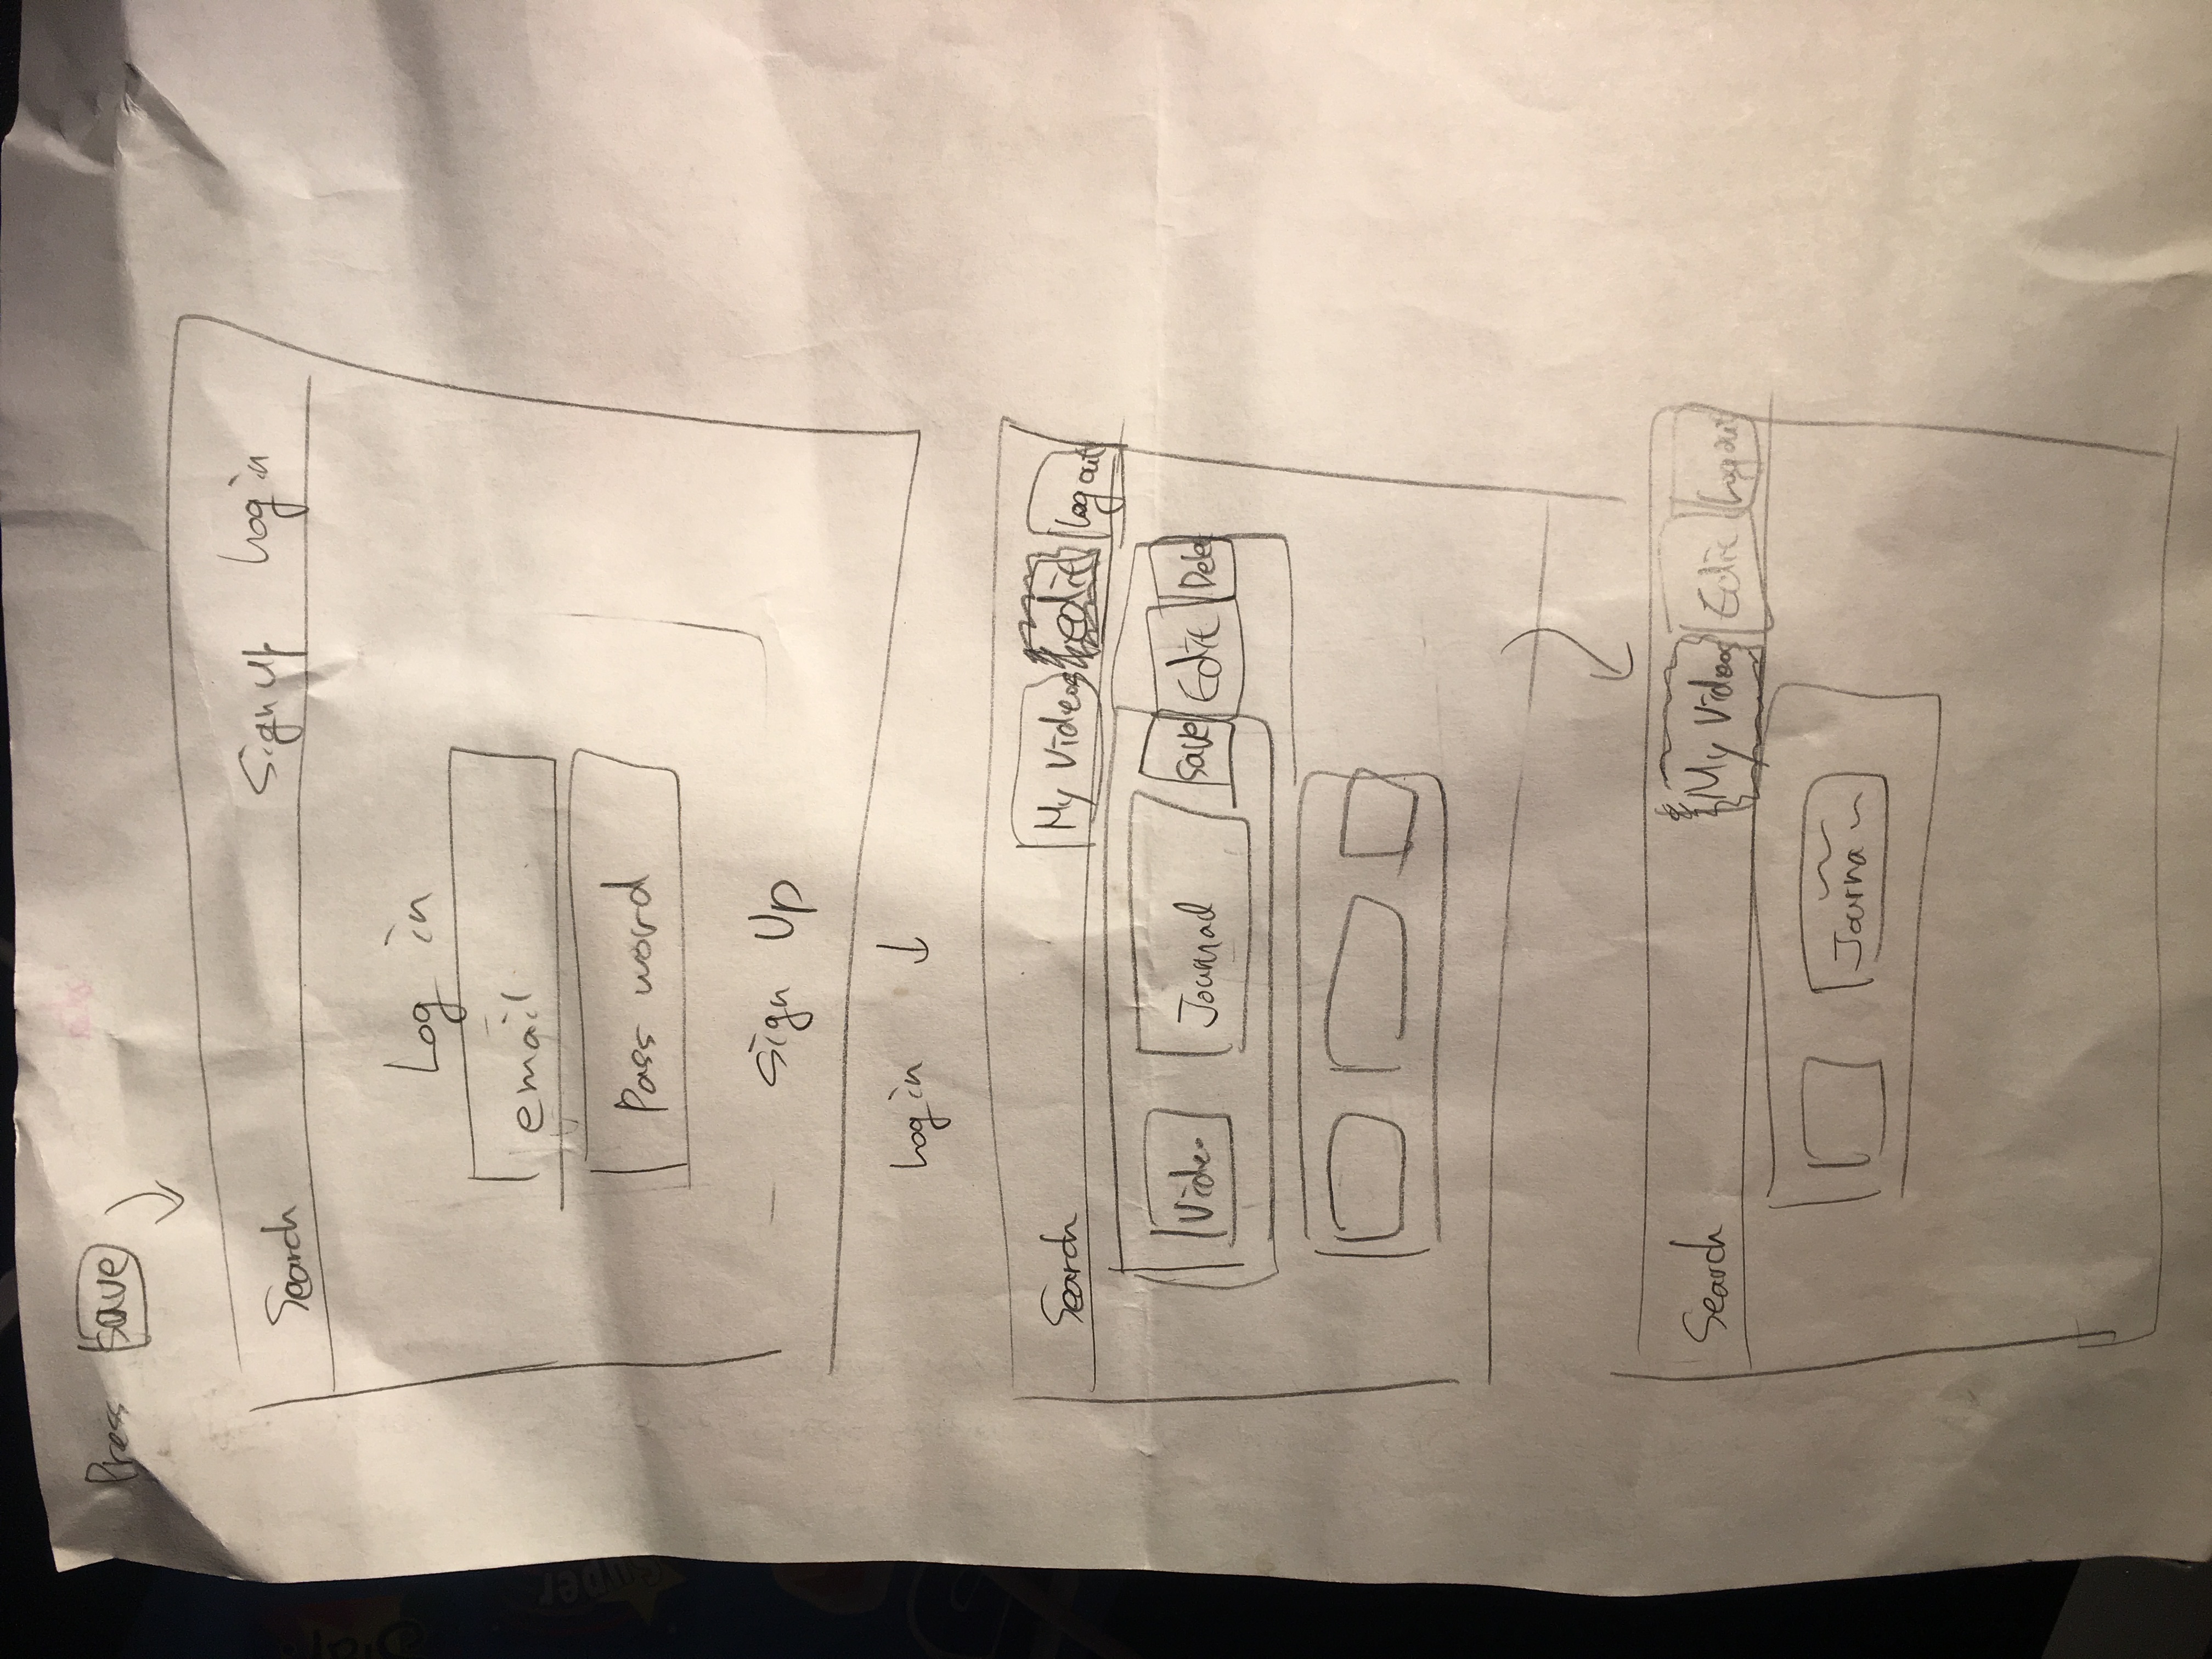 Press save
Search Sign up Log in
Log in
email
Pass word
Sign Up
Log in
Search My Videos edit Log out
Video Journal Save Edit Dele
Search My Videos Edit Log out
Journa
super